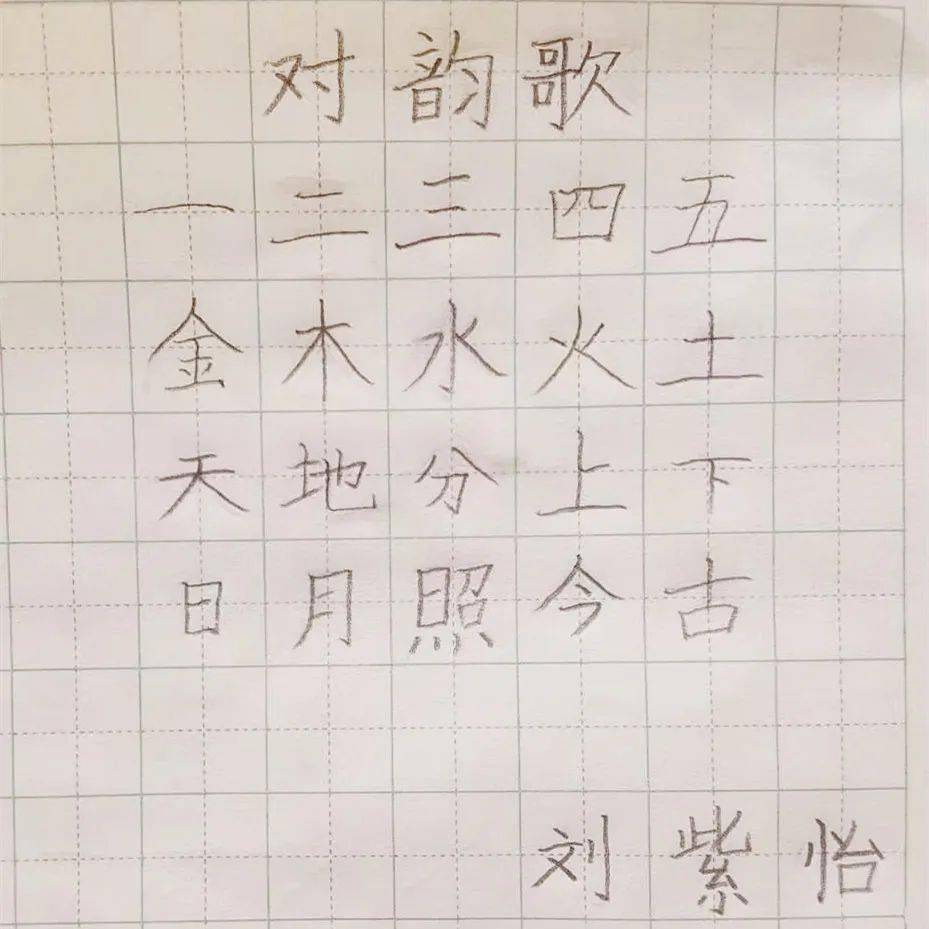 对韵歌
一二三四五
金木水火土
天地分上下
日月照今古
刘紫怡